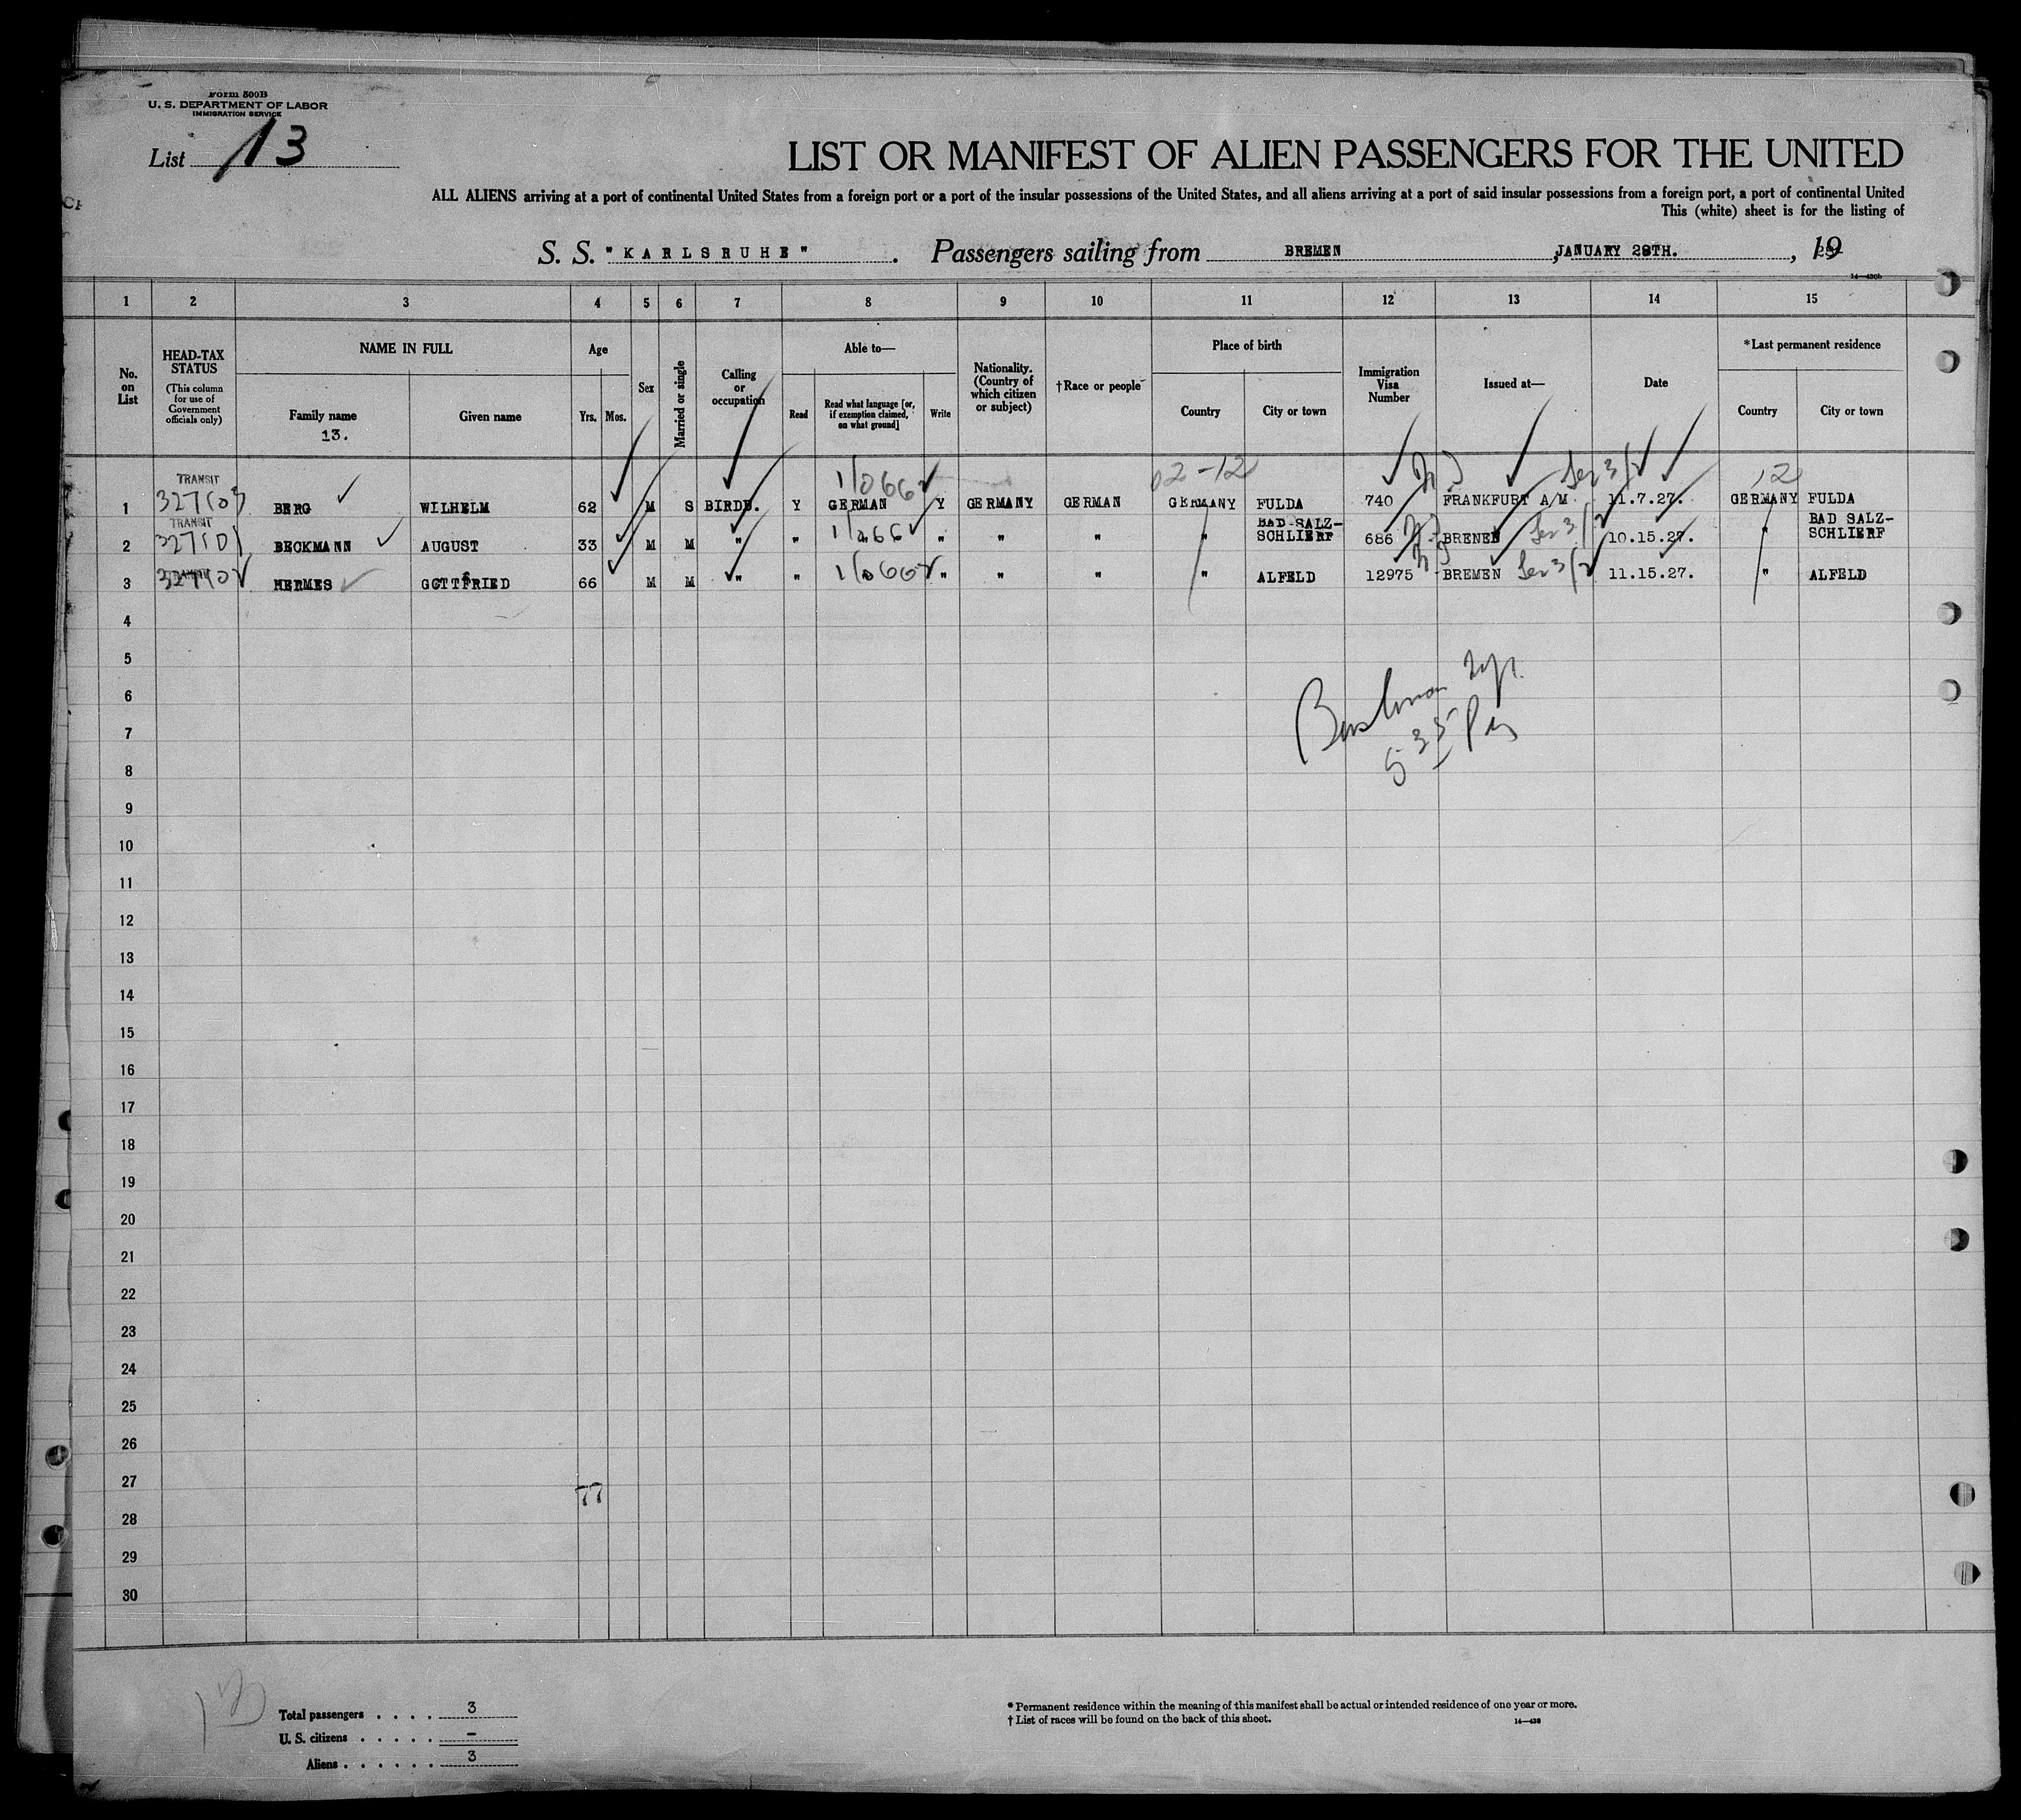 Form 500B
U. S. DEPARTMENT OF LABOR
IMMIGRATION SERVICE
List 13
LIST OR MANIFEST OF ALIEN PASSENGERS FOR THE UNITED
ALL ALIENS arriving at a port of continental United States from a foreign port or a port of the insular possessions of the United States, and all aliens arriving at a port of said insular possessions from a foreign port, a port of continental United
This (white) sheet is for the listing of
S. S. "KARLSRUHE". Passengers sailing from BREMEN, JANUARY 28TH., 19
14—430b
1 2 3 4 5 6 7 8 9 10 11 12 13 14 15
No. on List
HEAD-TAX STATUS (This column for use of Government officials only)
NAME IN FULL
Family name 13.
Given name
Age
Yrs. Mos.
Sex
Married or single
Calling or occupation
Able to—
Read
Read what language [or, if exemption claimed, on what ground]
Write
Nationality. (Country of which citizen or subject)
†Race or people
Place of birth
Country
City or town
Immigration Visa Number
Issued at—
Date
*Last permanent residence
Country
City or town
02-12
12
1 TRANSIT 327103 BERG WILHELM 62 M S BIRDD. Y GERMAN Y GERMANY GERMAN GERMANY FULDA 740 FRANKFURT A/M 11.7.27. GERMANY FULDA
2 TRANSIT 327101 BECKMANN AUGUST 33 M M " " " " " " BAD-SALZ-SCHLIERF 686 BREMEN 10.15.27. " BAD SALZ-SCHLIERF
3 HERMES GOTTFRIED 66 M M " " " " " " ALFELD 12975 BREMEN 11.15.27. " ALFELD
4
5
6
7
8
9
10
11
12
13
14
15
16
17
18
19
20
21
22
23
24
25
26
27
77
28
29
30
Total passengers . . . . 3
U. S. citizens . . . . . –
Aliens . . . . . . 3
* Permanent residence within the meaning of this manifest shall be actual or intended residence of one year or more.
† List of races will be found on the back of this sheet.
14—430